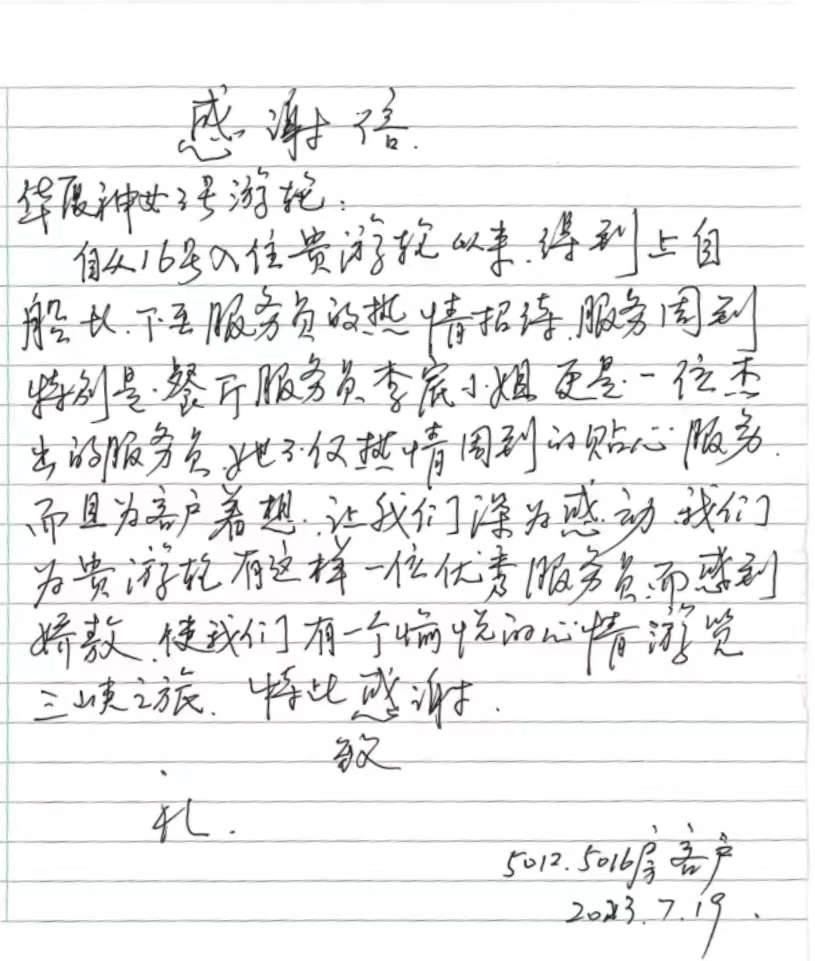 感谢信.
华夏神女3号游轮：
自从16号入住贵游轮以来.得到上自
船长.下至服务员的热情招待.服务周到
特别是.餐厅服务员李宸小姐更是.一位杰
出的服务员.她不仅热情周到的贴心服务.
而且为客户着想.让我们深为感动.我们
为贵游轮有这样一位优秀服务员.而感到
娇敖.使我们有一个愉悦的心情游览
三峡之旅.特此感谢.
致
礼.
5012.5016房客户
2023.7.19.